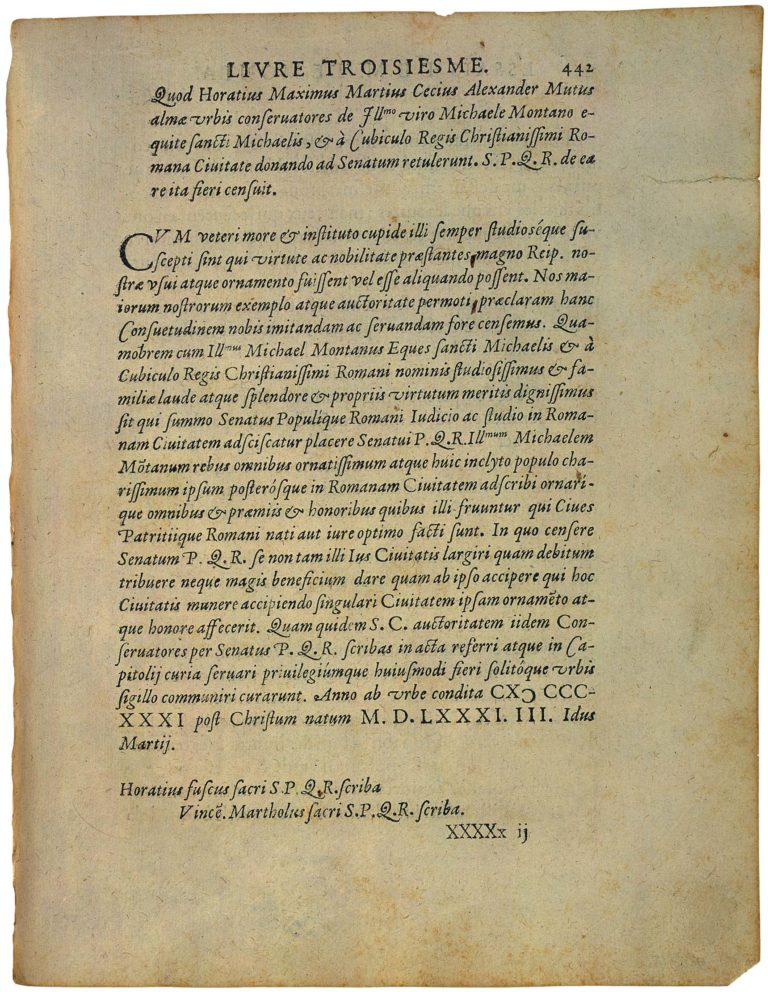 LIVRE TROISIESME. 442
Quod Horatius Maximus Martius Cecius Alexander Mutus
almæ vrbis conseruatores de Ill^mo viro Michaele Montano e-
quite sancti Michaelis, & à Cubiculo Regis Christianissimi Ro-
mana Ciuitate donando ad Senatum retulerunt. S. P. Q. R. de ea
re ita fieri censuit.
CVM veteri more & instituto cupide illi semper studioséque su-
scepti sint qui virtute ac nobilitate præstantes, magno Reip. no-
stræ vsui atque ornamento fuissent vel esse aliquando possent. Nos ma-
iorum nostrorum exemplo atque auctoritate permoti, præclaram hanc
Consuetudinem nobis imitandam ac seruandam fore censemus. Qua-
mobrem cum Ill^mus Michael Montanus Eques sancti Michaelis & à
Cubiculo Regis Christianissimi Romani nominis studiosissimus & fa-
miliæ laude atque splendore & propriis virtutum meritis dignissimus
sit qui summo Senatus Populique Romani Iudicio ac studio in Roma-
nam Ciuitatem adsciscatur placere Senatui P. Q. R. Ill^mum Michaelem
Mõtanum rebus omnibus ornatissimum atque huic inclyto populo cha-
rissimum ipsum posterósque in Romanam Ciuitatem adscribi ornari-
que omnibus & præmiis & honoribus quibus illi fruuntur qui Ciues
Patritiique Romani nati aut iure optimo facti sunt. In quo censere
Senatum P. Q. R. se non tam illi Ius Ciuitatis largiri quam debitum
tribuere neque magis beneficium dare quam ab ipso accipere qui hoc
Ciuitatis munere accipiendo singulari Ciuitatem ipsam ornamẽto at-
que honore affecerit. Quam quidem S. C. auctoritatem iidem Con-
seruatores per Senatus P. Q. R. scribas in acta referri atque in Ca-
pitolij curia seruari priuilegiúmque huiusmodi fieri solitóque vrbis
sigillo communiri curarunt. Anno ab vrbe condita CXↃ CCC-
XXXI post Christum natum M. D. LXXXI. III. Idus
Martij.
Horatius fuscus sacri S. P. Q. R. scriba
Vincẽ. Martholus sacri S. P. Q. R. scriba.
XXXXx ij